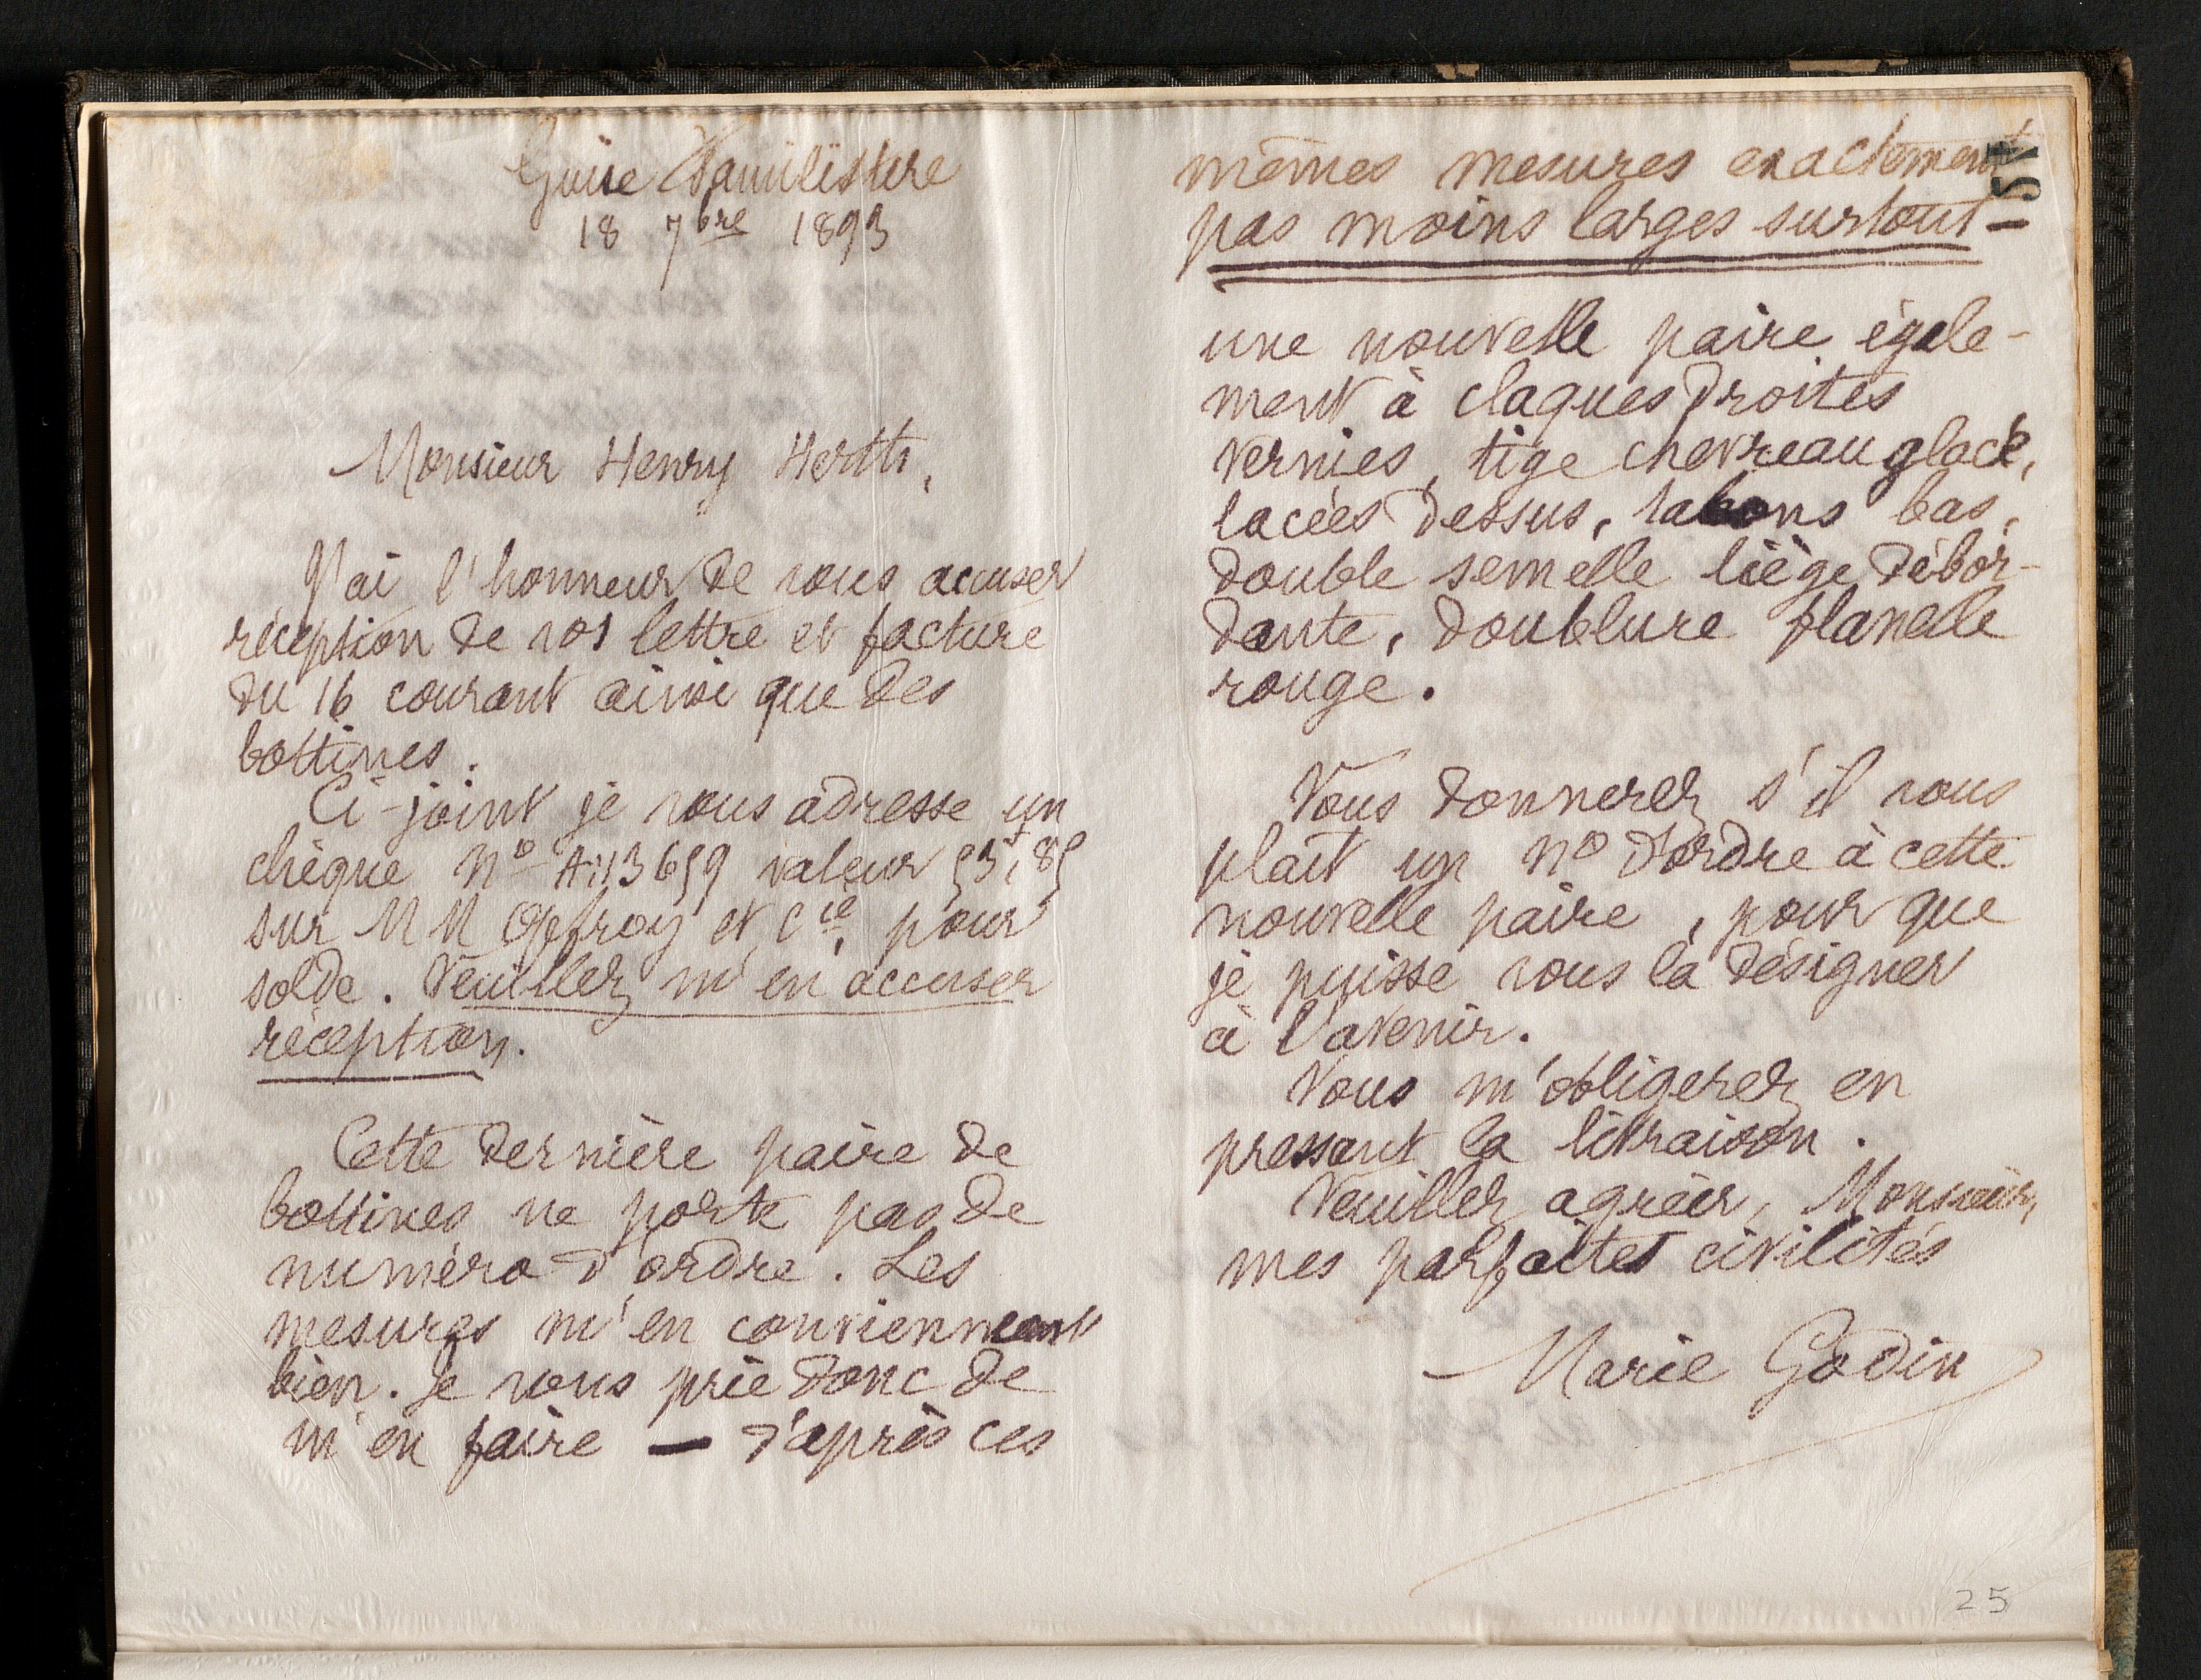 Guise Familistère
18 7bre 1893
Monsieur Henry Herth,
J'ai l'honneur de vous accuser
réception de vos lettre et facture
du 16 courant ainsi que des
bottines.
Ci-joint je vous adresse un
chèque No 3659 valeur 53f,85
sur MM Gefroy et Cie, pour
solde. Veuillez m'en accuser
réception.
Cette dernière paire de
bottines ne porte pas de
numéro d'ordre. Les
mesures m'en conviennent
bien. Je vous prie donc de
m'en faire — d'après ces
mêmes mesures exactement
pas moins larges surtout —
une nouvelle paire égale-
ment à claques droites
vernies, tige chevreau glacé,
lacées dessus, talons bas,
double semelle liège débor-
dante, doublure flanelle
rouge.
Vous donnerez s'il vous
plaît un No d'ordre à cette
nouvelle paire, pour que
je puisse vous la désigner
à l'avenir.
Vous m'obligerez en
pressant la livraison.
Veuillez agréer, Monsieur,
mes parfaites civilités
Marie Godin
25